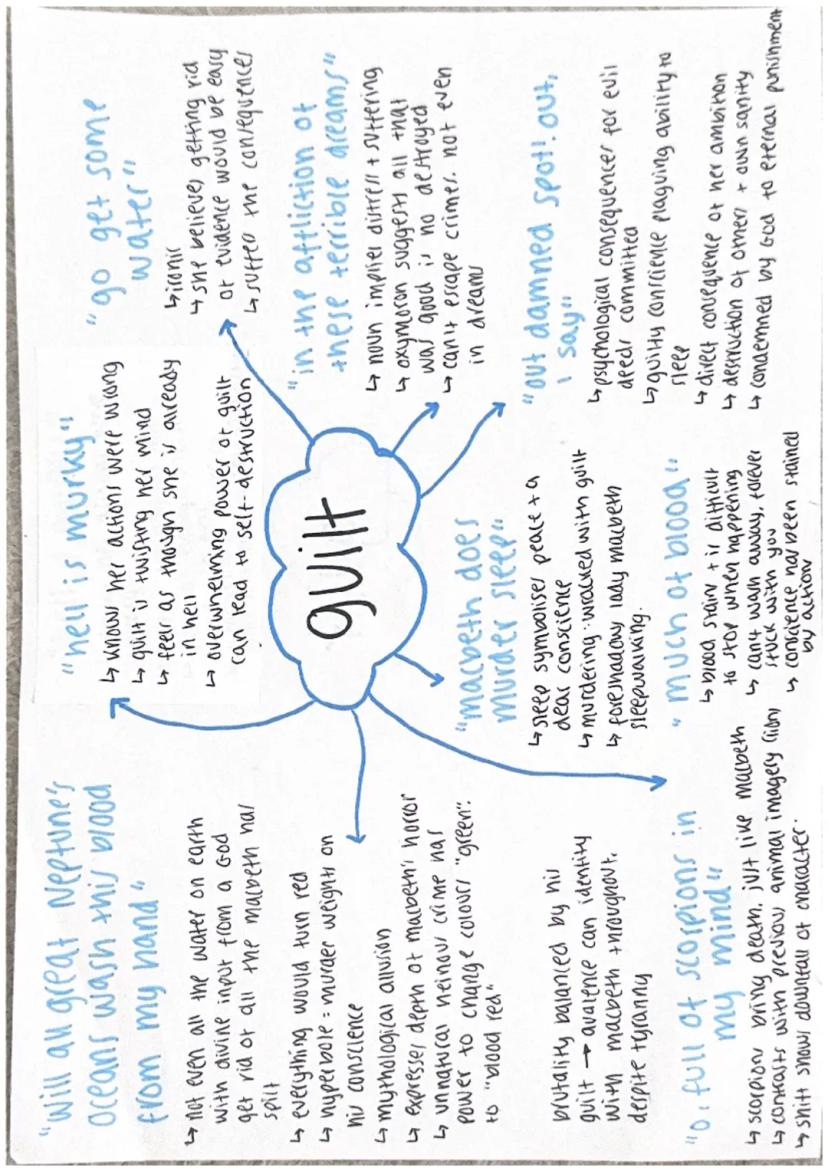 "Will all great Neptune's
oceans wash this blood
from my hand"
↳ not even all the water on earth
with divine input from a God
get rid of all the macbeth has
spilt
↳ everything would turn red
↳ hyperbole = murder weights on
his conscience
↳ mythological allusion
↳ expresses depth of macbeths horror
↳ unnatural heinous crime has
power to change colours "green":
to "blood red"
brutality balanced by his
guilt → audience can identity
with macbeth throughout.
despite tyranny
"O, full of scorpions in
my mind"
↳ scorpions bring death, just like macbeth
↳ contrasts with previous animal imagery (lion)
↳ shift shows downfall of character.
"hell is murky"
↳ knows her actions were wrong
↳ guilt is twisting her mind
↳ feels as though she is already
in hell
↳ overwhelming power of guilt
can lead to self-destruction
guilt
"macbeth does
murder sleep"
↳ sleep symbolises peace + a
clear conscience
↳ murdering : wracked with guilt
↳ foreshadows lady macbeth
sleepwalking.
"much of blood"
↳ blood stains + is difficult
to stop when happening
↳ cant wash away, forever
stuck with you
↳ confidence has been stained
by action
"go get some
water"
↳ ironic
↳ she believes getting rid
of evidence would be easy
↳ suffers the consequences
"in the affliction of
these terrible dreams"
↳ noun implies distress + suffering
↳ oxymoron suggests all that
was good is no destroyed
↳ can't escape crimes, not even
in dreams
"out damned spot! out,
I say"
↳ psychological consequences for evil
deeds committed
↳ guilty conscience plaguing ability to
sleep
↳ direct consequence of her ambition
↳ destruction of others + own sanity
↳ condemned by God to eternal punishment